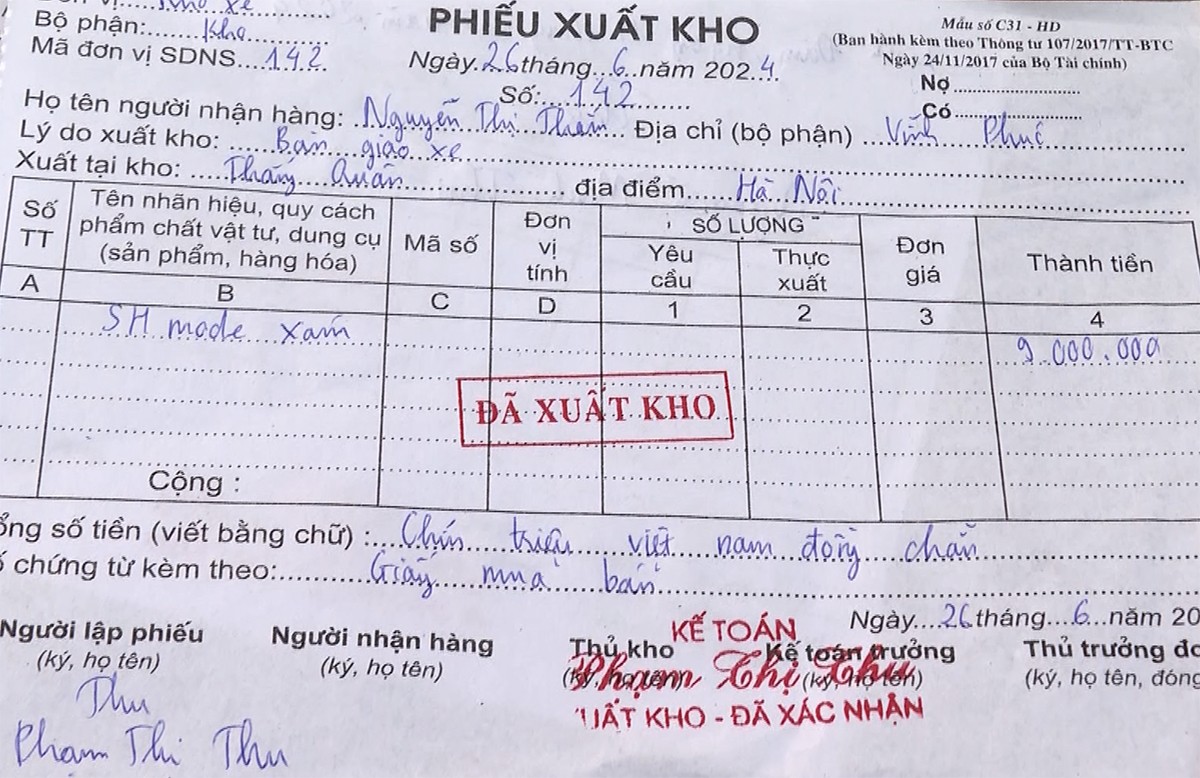 Kho xe
Bộ phận: Kho
Mã đơn vị SDNS 142
PHIẾU XUẤT KHO
Ngày 26 tháng 6 năm 2024
Số: 142
Mẫu số C31 - HD
(Ban hành kèm theo Thông tư 107/2017/TT-BTC
Ngày 24/11/2017 của Bộ Tài chính)
Nợ
Có
Họ tên người nhận hàng: Nguyễn Thị Địa chỉ (bộ phận) Vĩnh Phúc
Lý do xuất kho: Bàn giao xe
Xuất tại kho: Quân địa điểm Hà Nội
Số TT
Tên nhãn hiệu, quy cách
phẩm chất vật tư, dung cụ
(sản phẩm, hàng hóa)
Mã số
Đơn vị tính
SỐ LƯỢNG
Yêu cầu
Thực xuất
Đơn giá
Thành tiền
A B C D 1 2 3 4
SH mode xám 9.000.000
ĐÃ XUẤT KHO
Cộng :
ổng số tiền (viết bằng chữ) : Chín triệu việt nam đồng chẵn
ố chứng từ kèm theo: Giấy mua bán
Ngày 26 tháng 6 năm 20
Người lập phiếu
(ký, họ tên)
Người nhận hàng
(ký, họ tên)
Thủ kho
(ký, họ tên)
Kế toán trưởng
(ký, họ tên)
Thủ trưởng đơ
(ký, họ tên, đóng
KẾ TOÁN
Phạm Thị Thu
XUẤT KHO - ĐÃ XÁC NHẬN
Thu
Phạm Thị Thu